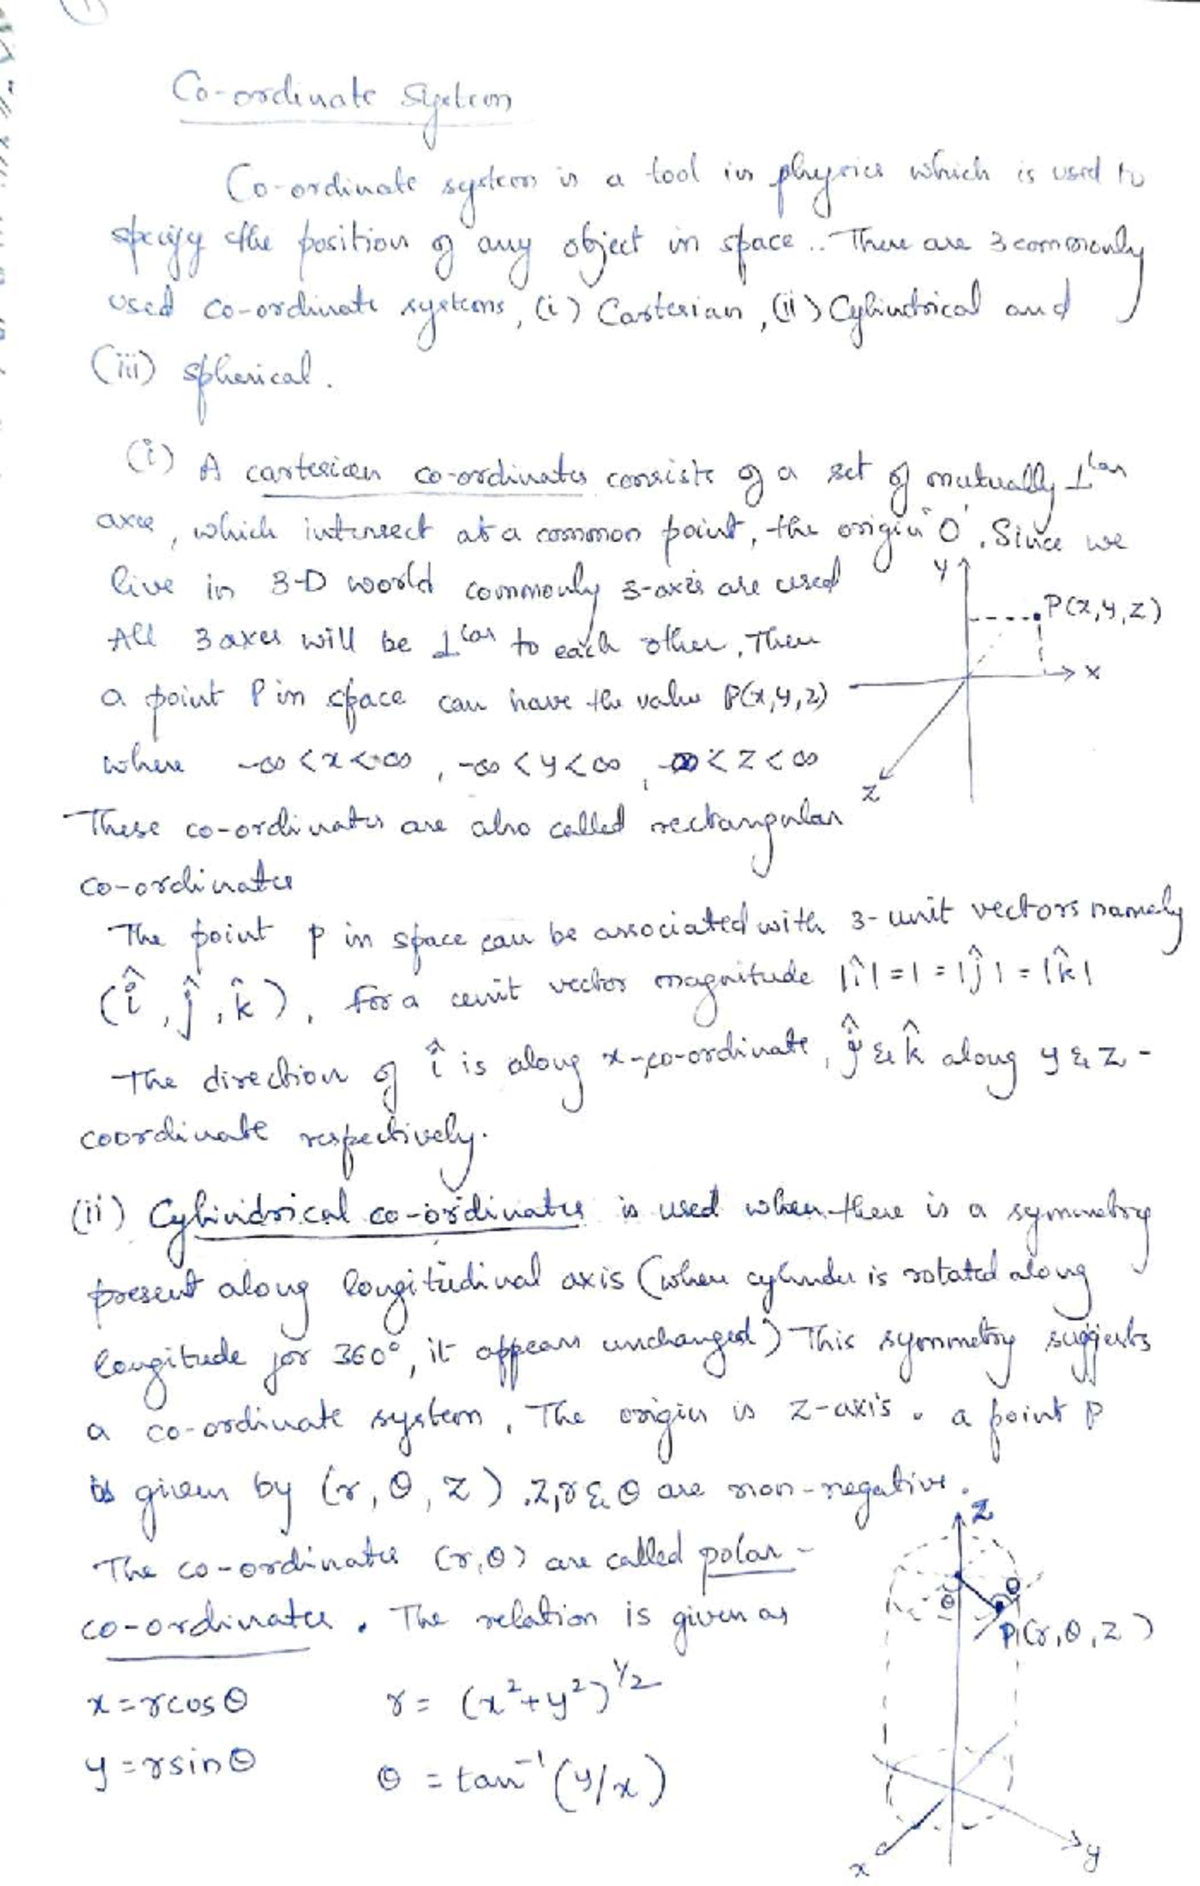 Co-ordinate System
Co-ordinate system is a tool in physics which is used to
specify the position of any object in space.. There are 3 commonly
used co-ordinate systems, (i) Cartesian, (ii) Cylindrical and
(iii) spherical.
(i) A cartesian co-ordinates consists of a set of mutually ⊥lar
axes, which intersect at a common point, the origin "O". Since we
live in 3-D world commonly 3-axis are used
All 3 axes will be ⊥lar to each other. Then
a point P in space can have the value P(x,y,z)
where -∞ < x < ∞, -∞ < y < ∞, -∞ < z < ∞
y
P(x,y,z)
x
z
These co-ordinates are also called rectangular
co-ordinates
The point P in space can be associated with 3-unit vectors namely
(î, ĵ, k̂). For a unit vector magnitude |î| = 1 = |ĵ| = |k̂|
The direction of î is along x-co-ordinate, ĵ & k̂ along y & z -
coordinate respectively.
(ii) Cylindrical co-ordinates is used when there is a symmetry
present along longitudinal axis (when cylinder is rotated along
longitude for 360°, it appears unchanged) This symmetry suggests
a co-ordinate system. The origin is z-axis. a point P
is given by (r, θ, z). z, r & θ are non-negative.
The co-ordinates (r,θ) are called polar -
co-ordinates. The relation is given as
x = r cos θ r = (x²+y²)^1/2
y = r sin θ θ = tan⁻¹(y/x)
z
θ
θ
P(r,θ,z)
x
y